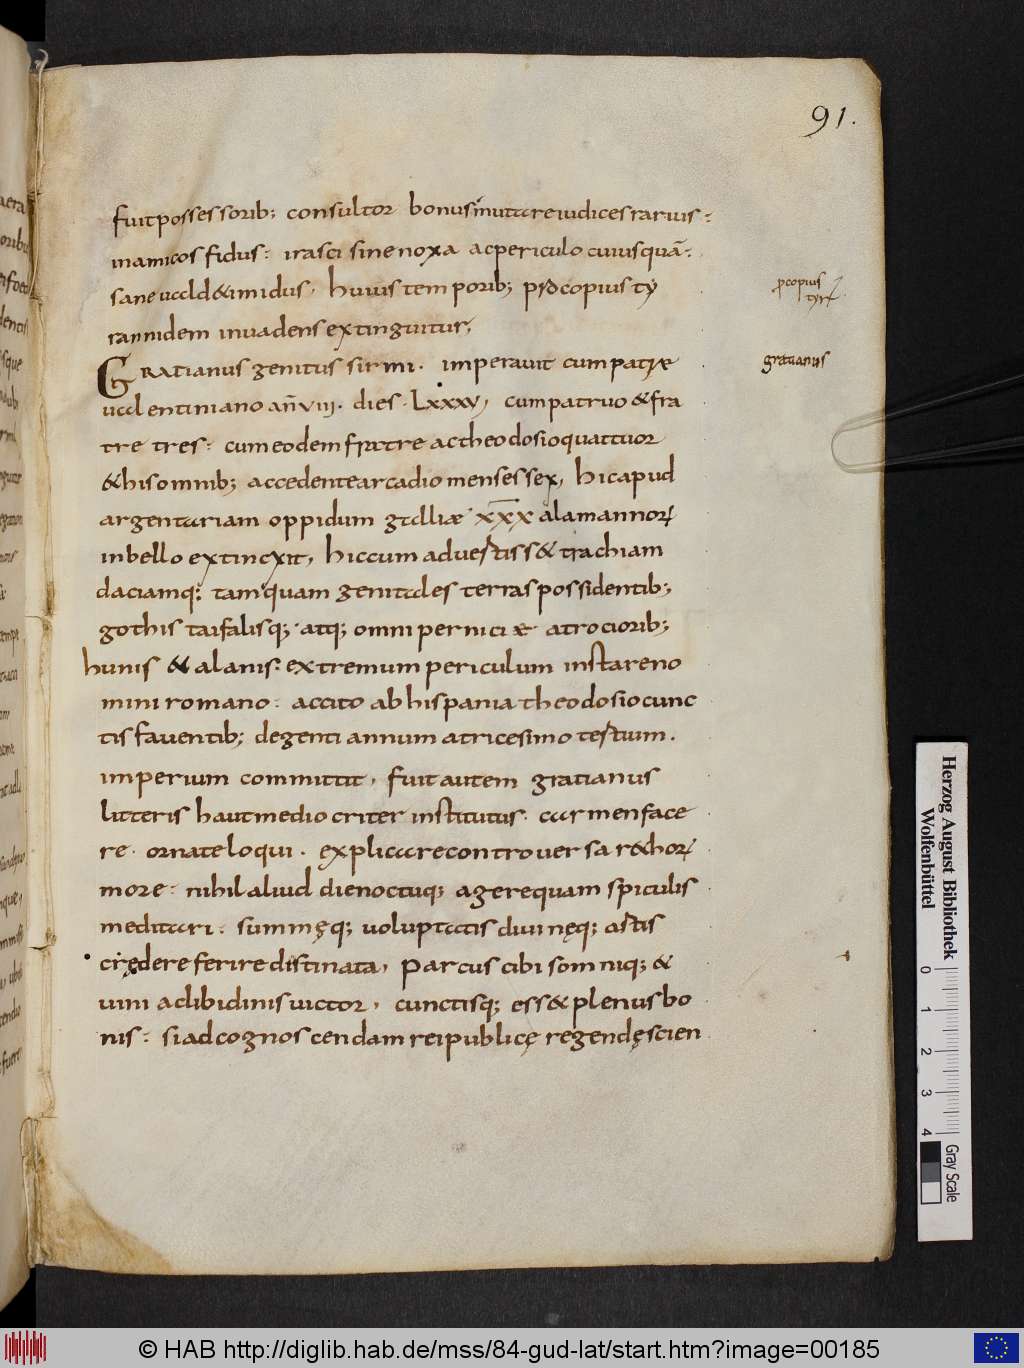 91.
fuit possessorib; consultor bonus mutare iudices rarius:
in amicos fidus: irasci sine noxa ac periculo cuiusquā:
sane ualde timidus. huius temporib; procopius ty
procopius
tyr
rannidem inuadens extinguitur,
Gratianus genitus sirmi. imperauit cum patre
gratianus
ualentiniano añ VIII. dies. LXXXV, cum patruo & fra
tre tres: cum eodem fratre ac theodosio quattuor
& his omnib; accedente arcadio menses sex, hic apud
argentariam oppidum galliæ XXX alamannoꝝ
in bello extincxit, hic cum aduertiss& trachiam
daciamq; tamquam genitales terras possidentib;
gothis taifalisq; atq; omni pernicie atrociorib;
hunis & alanis: extremum periculum instare no
mini romano: accito ab hispania theodosio cunc
tis fauentib; degenti annum a tricesimo tertium.
imperium committit, fuit autem gratianus
litteris haut mediocriter institutus. carmen face
re. ornate loqui. explicare controuersa rethoꝝ
more: nihil aliud die noctuq; agere quam spiculis
meditari: summęq; uoluptatis diuinęq; artis
credere ferire distinata, parcus cibi somniq; &
uini ac libidinis uictor, cunctisq; ess& plenus bo
nis: si ad cognoscendam reipublicę regendę scien
Herzog August Bibliothek
Wolfenbüttel
0 1 2 3 4
Gray Scale
© HAB http://diglib.hab.de/mss/84-gud-lat/start.htm?image=00185